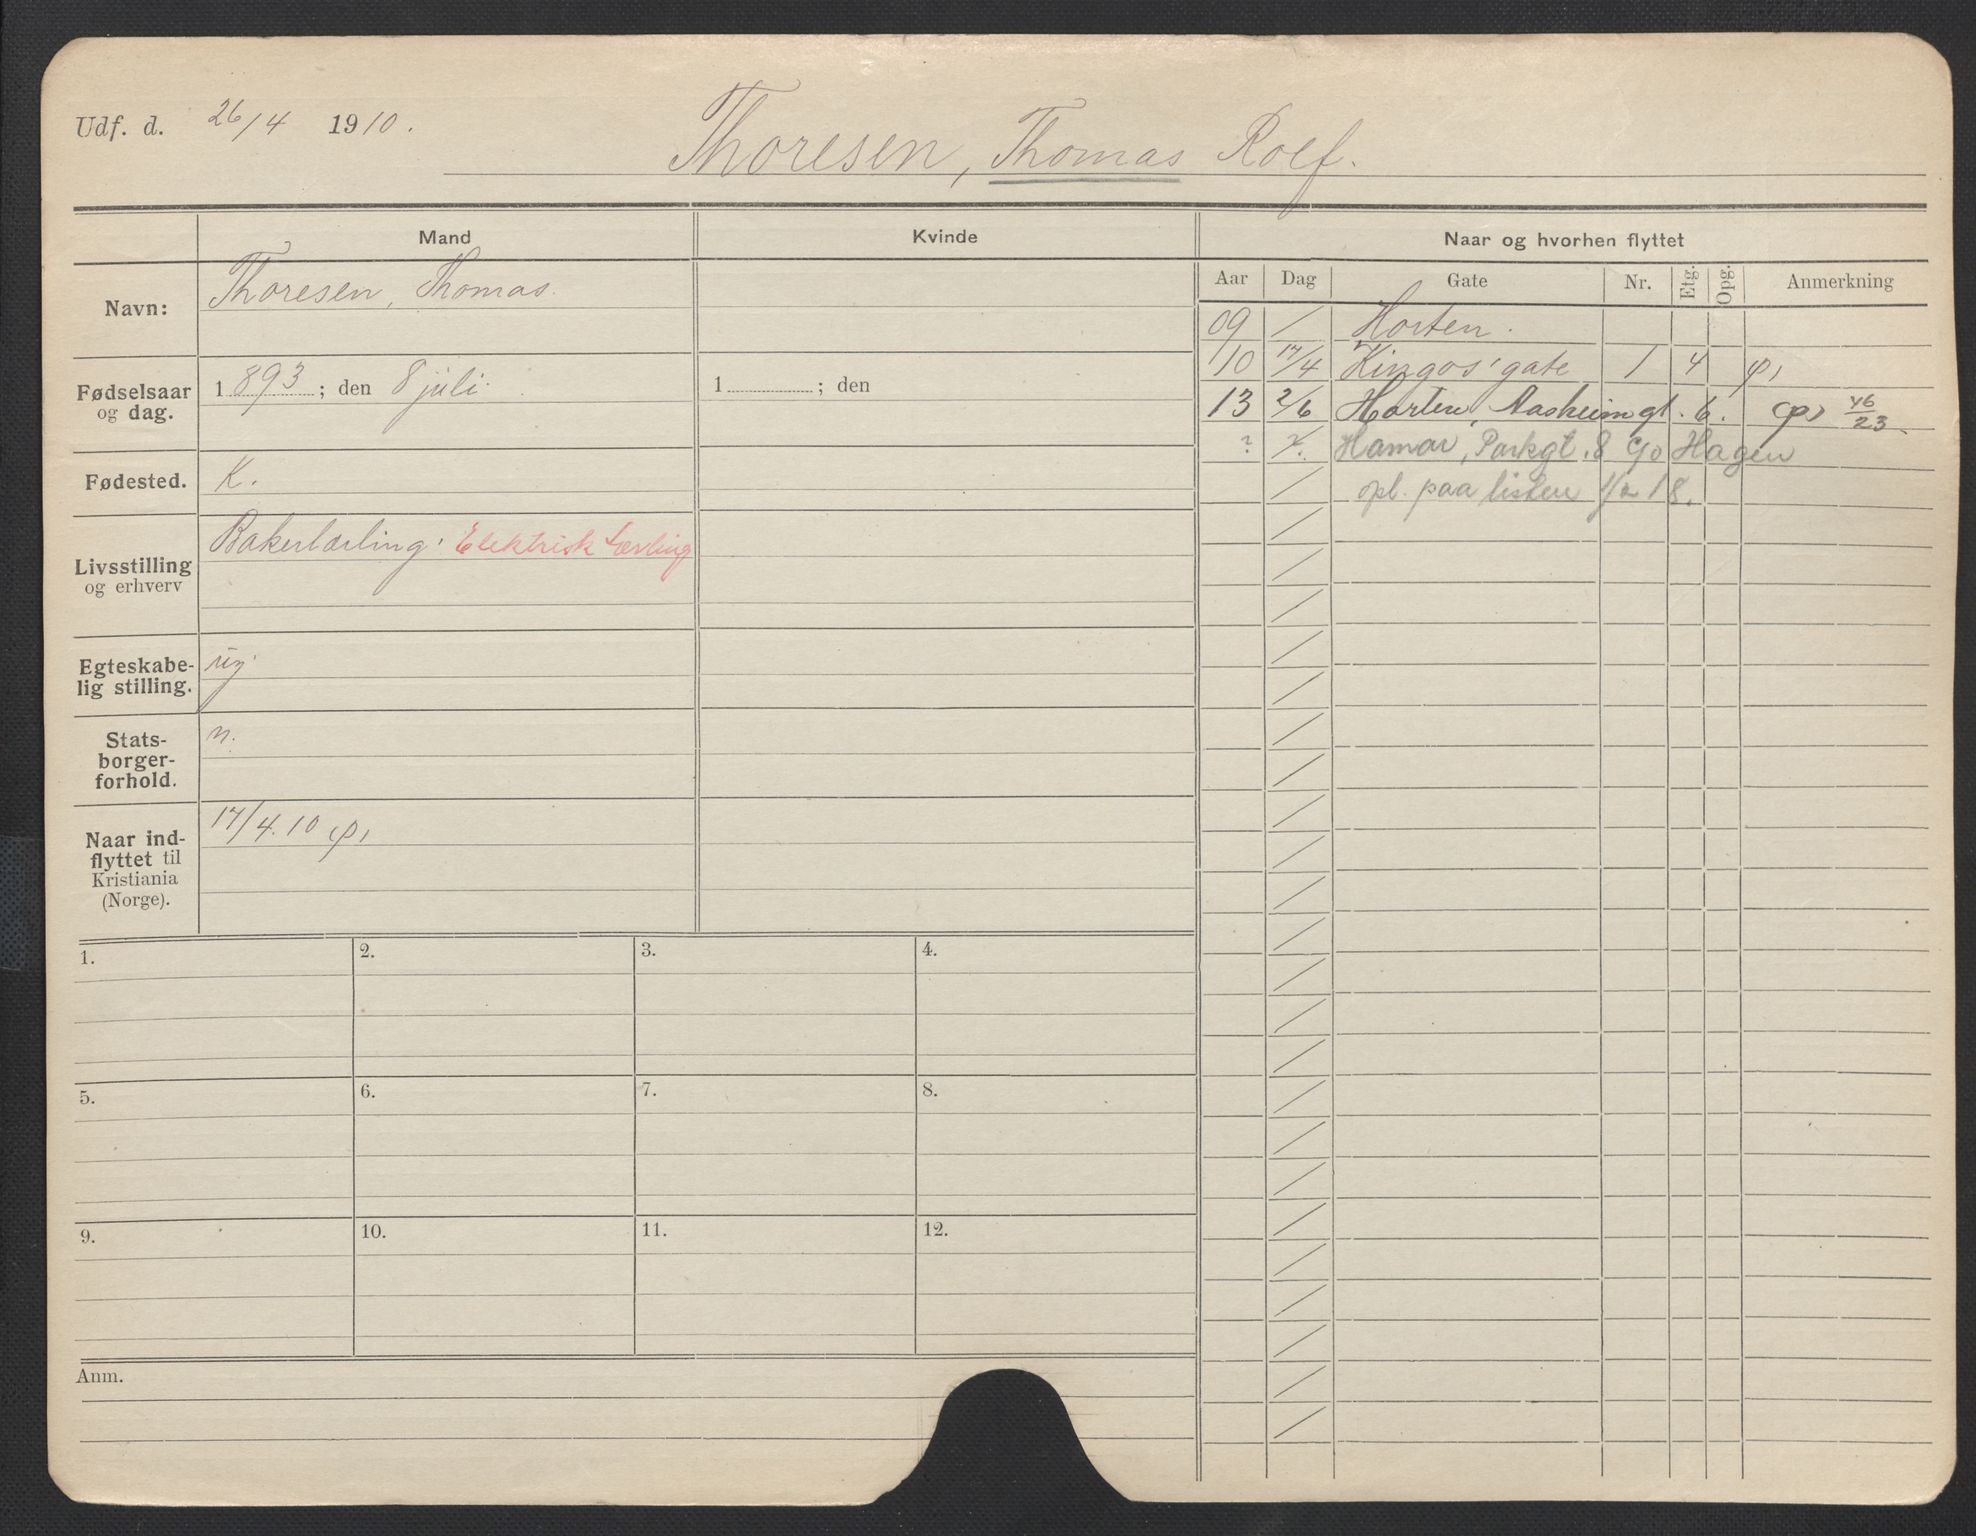 Udf. d. 26/4 1910.
Thoresen, Thomas Rolf.
Mand
Kvinde
Naar og hvorhen flyttet
Aar Dag Gate Nr. Etg. Opg. Anmerkning
Navn: Thoresen, Thomas.
Fødselsaar og dag. 1893; den 8 juli.
1 ; den
Fødested. K.
Livsstilling og erhverv Bakerlærling. Elektrisk Lærling
Egteskabe-
lig stilling. ug.
Stats-
borger-
forhold. n.
Naar ind-
flyttet til
Kristiania
(Norge). 17/4.10 (p)
09 / Horten.
10 17/4 Kingos' gate 1 4 (p)
13 2/6 Horten, Aasheimgt. 6. (p) 46/23
? ?/. Hamar, Parkgt. 8 c/o Hagen
/ opl. paa listen 1/2 18.
1. 2. 3. 4.
5. 6. 7. 8.
9. 10. 11. 12.
Anm.